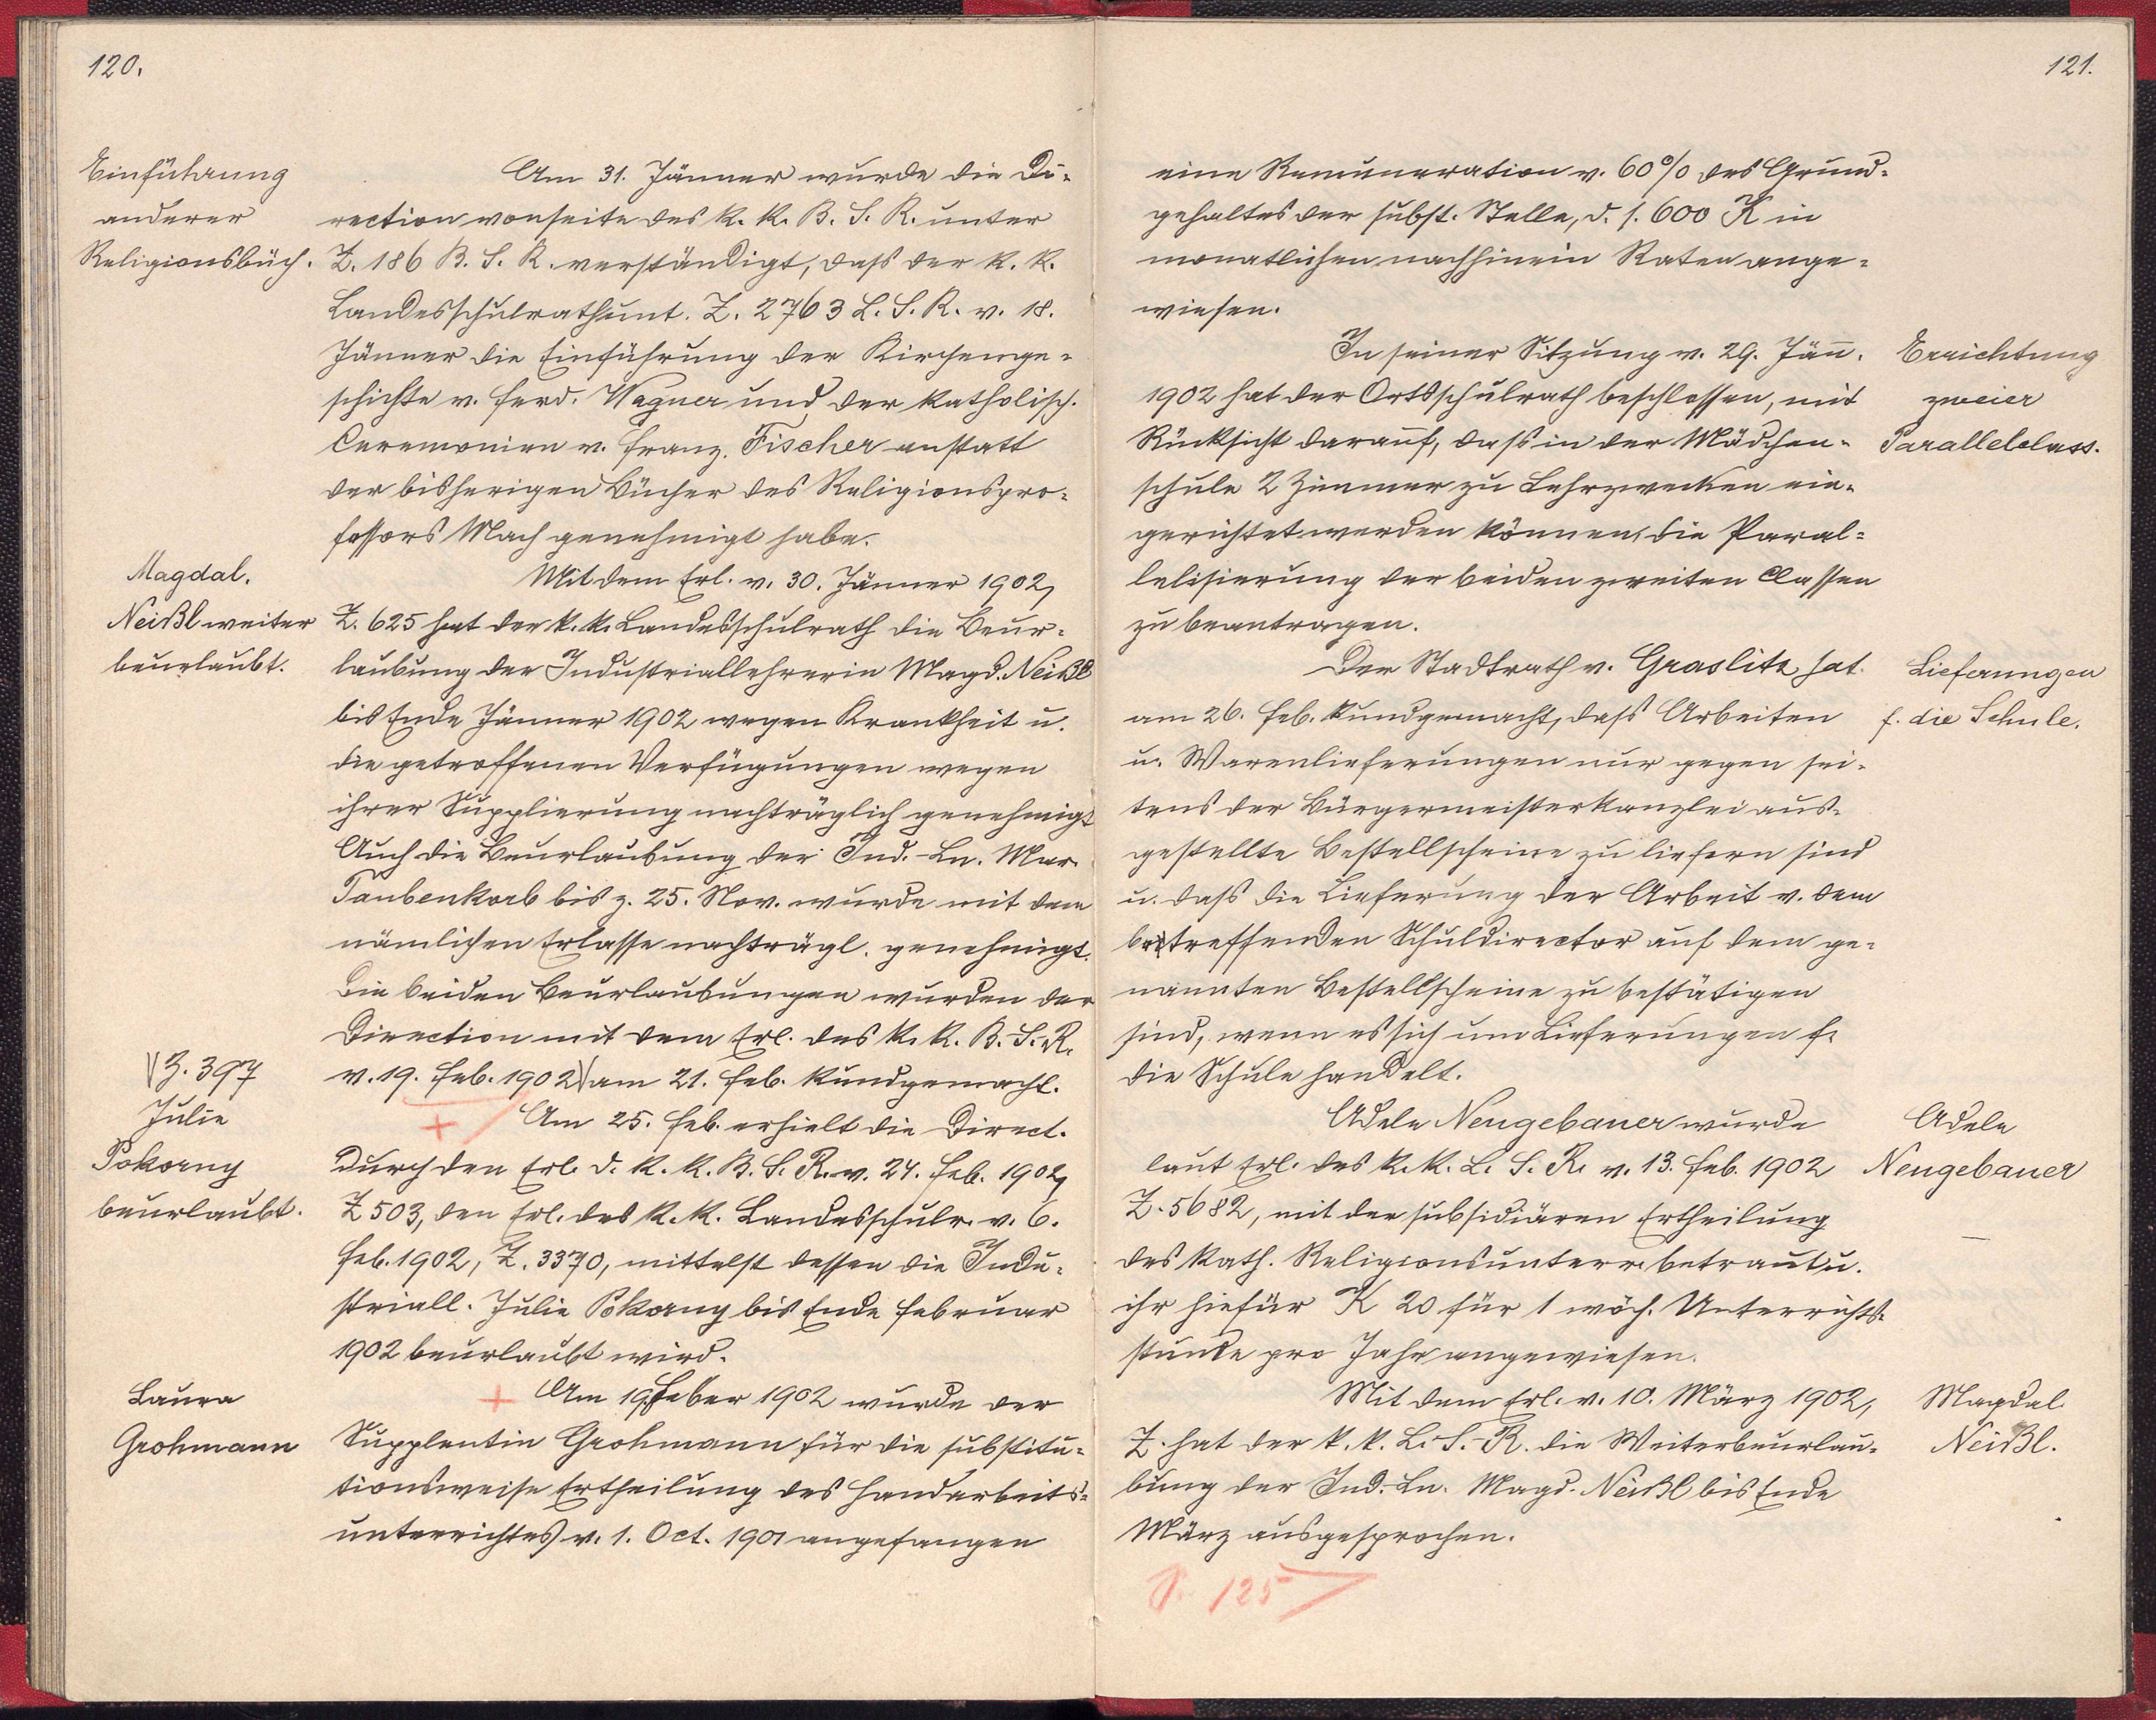 120.
Einführung
anderer
Religionsbüch.
Am 31. Jänner wurde die Di-
rection vonseite des k. k. B. S. R. unter
Z. 186 B. S. R. verständigt, dass der k. k.
Landesschulrath unt. Z. 2763 L. S. R. v. 18.
Jänner die Einführung der Kirchenge-
schichte v. Ferd. Wagner und der katholisch.
Ceremonien v. Franz Fischer anstatt
der bisherigen Bücher des Religionspro-
fessors Mach genehmigt habe.
Magdal.
Neißl weiter
beurlaubt.
Mit dem Erl. v. 30. Jänner 1902,
Z. 625 hat der k. k. Landesschulrath die Beur-
laubung der Industriallehrerin Magd. Neißl
bis Ende Jänner 1902 wegen Krankheit u.
die getroffenen Verfügungen wegen
ihrer Supplierung nachträglich genehmigt
Auch die Beurlaubung der Ind.-Ln. Mar.
Taubenkorb bis z. 25. Nov. wurde mit dem
nämlichen Erlasse nachträgl. genehmigt.
Die beiden Beurlaubungen wurden der
Direction mit dem Erl. des k. k. B.-S.-R.
\Z. 397
v. 19. Feb. 1902\ am 21. Feb. kundgemacht.
Julie
Pokorny
beurlaubt.
+ Am 25. Feb. erhielt die Direct.
durch den Erl. d. k. k. B. S. R. v. 24. Feb. 1902,
Z 503, den Erl. des k. k. Landesschulr. v. 6.
Feb. 1902, Z. 3370, mittelst dessen die Indu-
striall. Julie Pokorny bis Ende Februar
1902 beurlaubt wird.
Laura
Grohmann
+ Am 19. Feber 1902 wurde der
Supplentin Grohmann für die substitu-
tionsweise Ertheilung des Handarbeits-
unterrichtes v. 1. Oct. 1901 angefangen
121.
eine Remuneration v. 60% des Grund-
gehaltes der subst. Stelle, d. s. 600 K in
monatlichen nachhinein Raten ange-
wiesen.
Errichtung
zweier
Parallelclass.
In seiner Sitzung v. 29. Jän.
1902 hat der Ortsschulrath beschlossen, mit
Rücksicht darauf, dass in der Mädchen-
schule 2 Zimmer zu Lehrzwecken ein-
gerichtet werden können, die Paral-
lelisierung der beiden zweiten Classen
zu beantragen.
Lieferungen
f. die Schule.
Der Stadtrath v. Graslitz hat
am 26. Feb. kundgemacht, dass Arbeiten
u. Warenlieferungen nur gegen sei-
tens der Bürgermeisterkanzlei aus-
gestellte Bestellscheine zu liefern sind
u. dass die Lieferung der Arbeit v. dem
betreffenden Schuldirector auf dem ge-
nannten Bestellscheine zu bestätigen
sind, wenn es sich um Lieferungen f.
die Schule handelt.
Adele
Neugebauer
Adele Neugebauer wurde
laut Erl. des k. k. L. S. R. v. 13. Feb. 1902
Z. 5682, mit der subsidiären Ertheilung
des kath. Religionsunterr. betraut u.
ihr hiefür K 20 für 1 wöch. Unterrichts-
stunde pro Jahr angewiesen.
Magdal.
Neißl.
Mit dem Erl. v. 10. März 1902,
Z. hat der k. k. L.-S.-R. die Weiterbeurlau-
bung der Ind.-Ln. Magd. Neißl bis Ende
März ausgesprochen.
S. 125